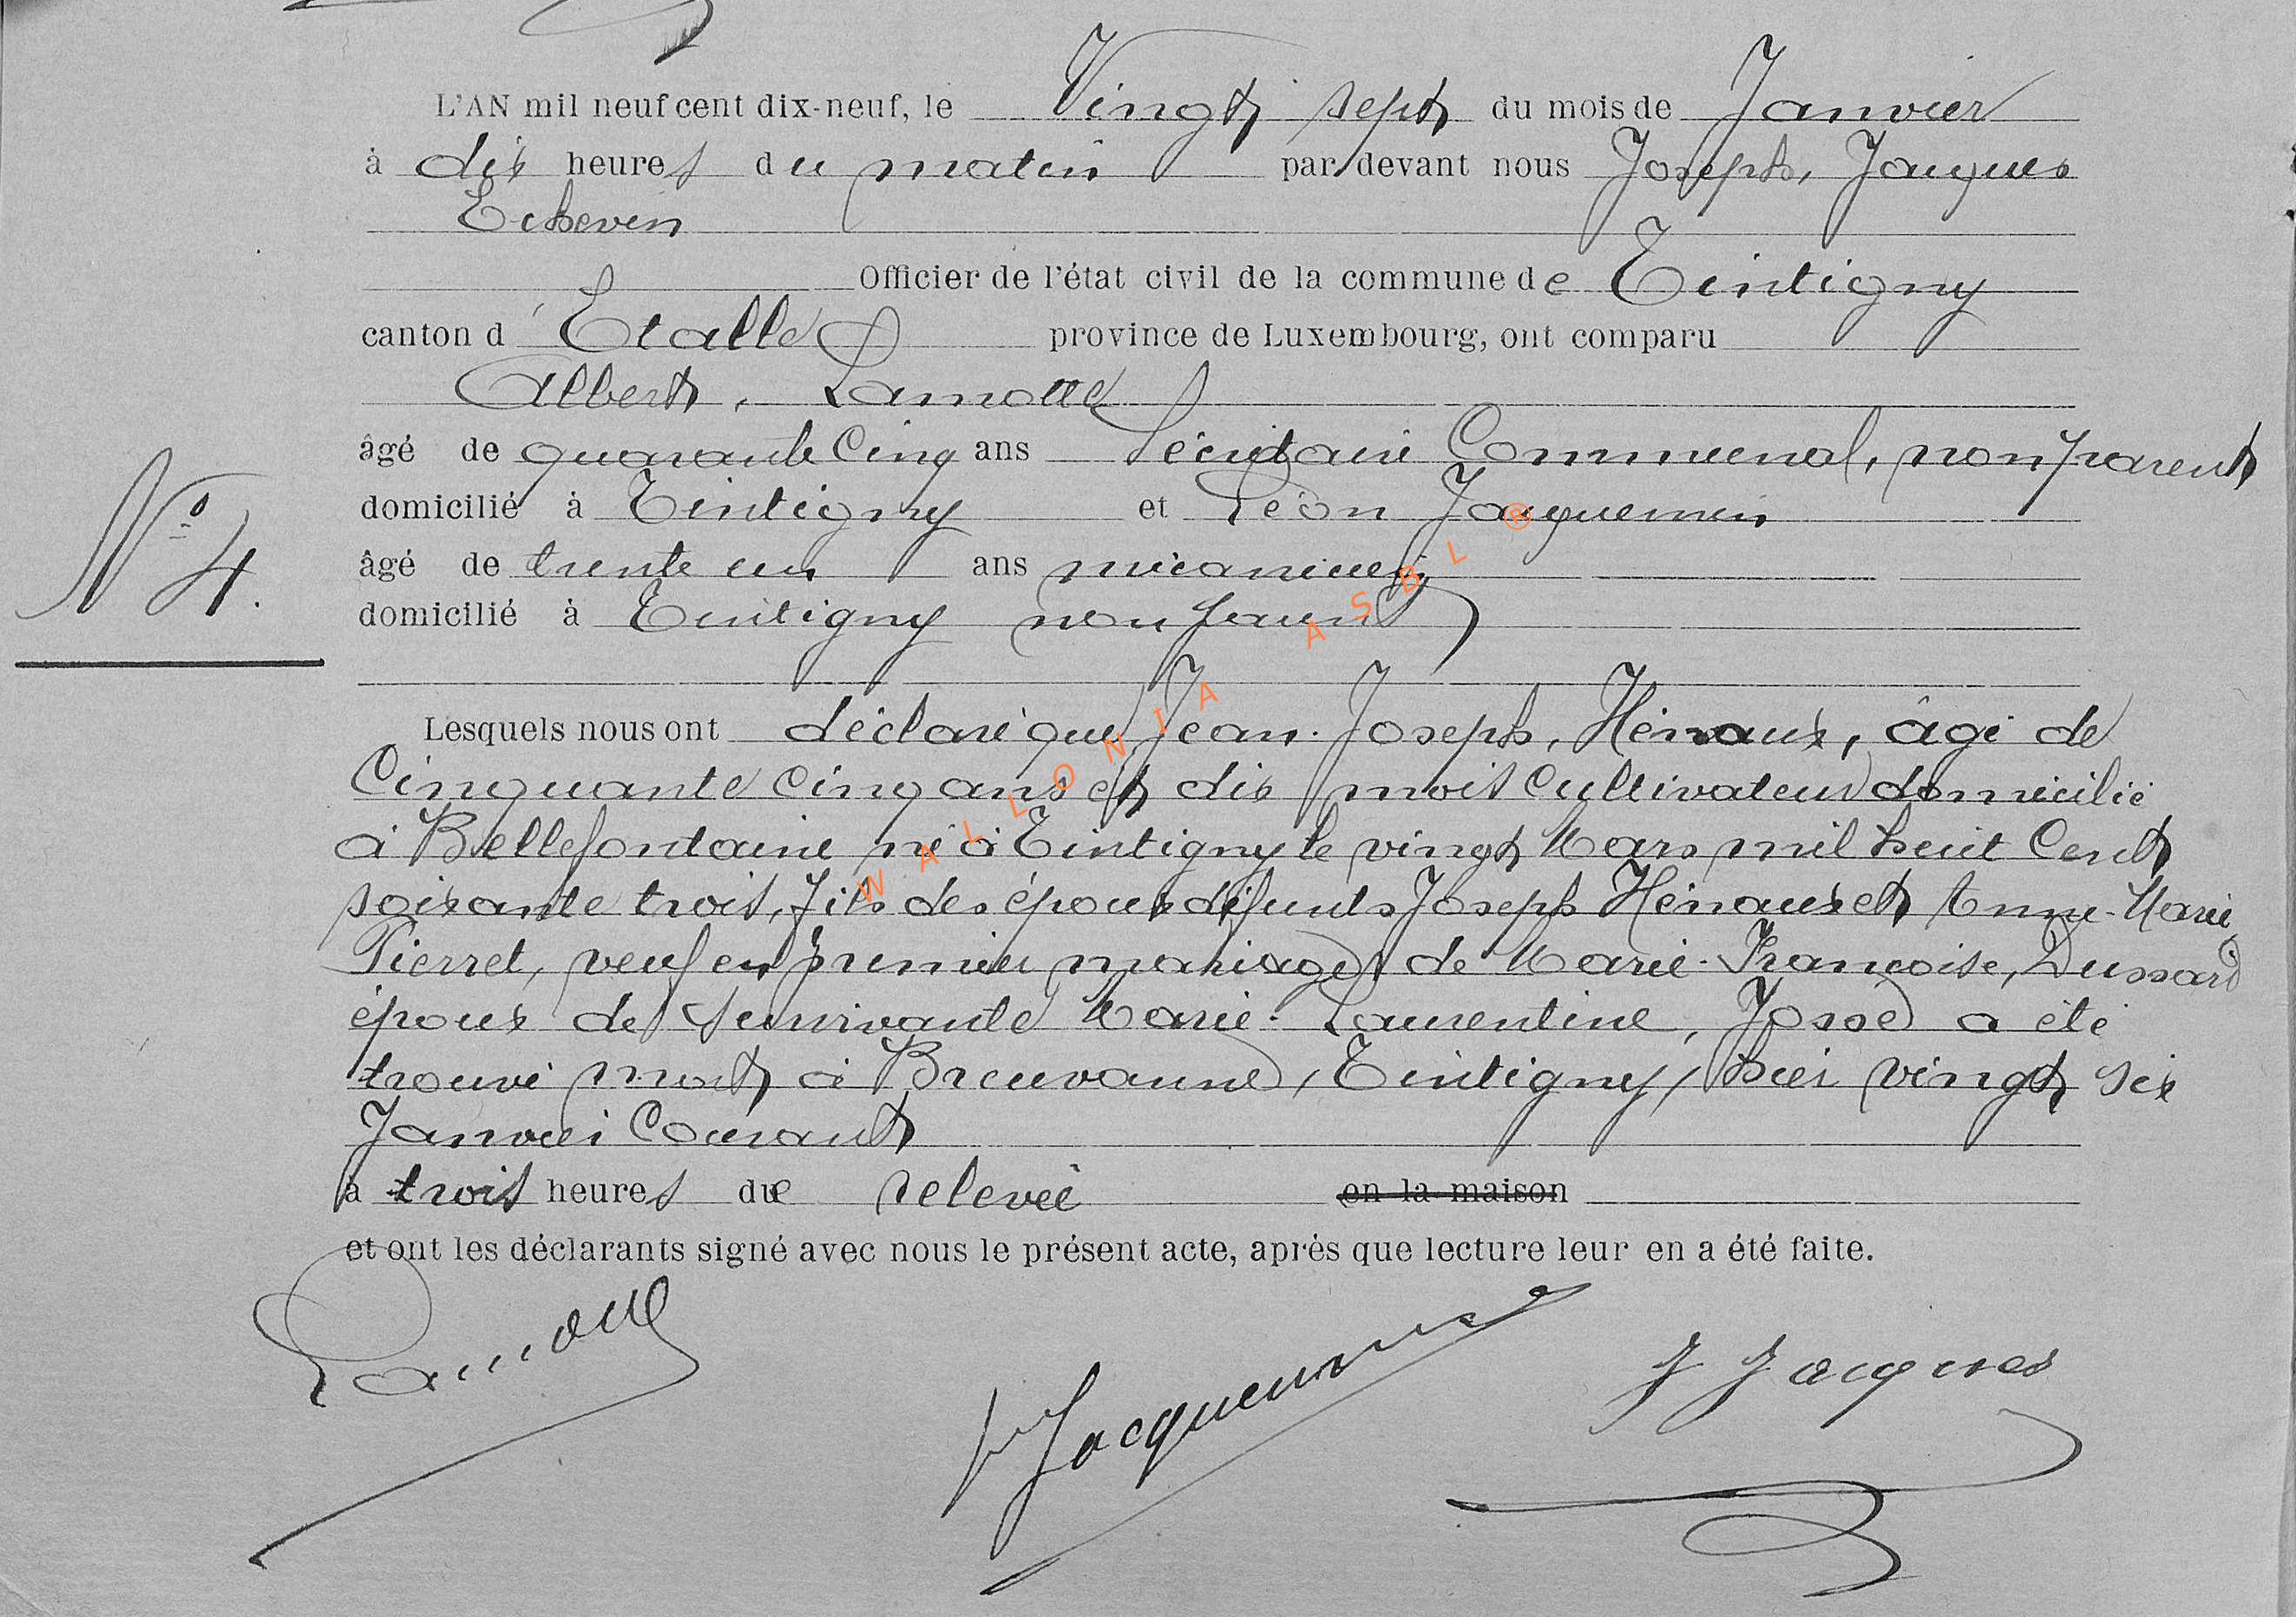 L'AN mil neuf cent dix-neuf, le Vingt sept du mois de Janvier
à dix heures du matin par devant nous Joseph, Jacques
Echevin
Officier de l'état civil de la commune de Tintigny
canton d'Etalle province de Luxembourg, ont comparu
Albert, Lamotte
âgé de quarante cinq ans Sécrétaire Communal, non parent
domicilié à Tintigny et Léon Jacquemin
âgé de trente un ans mécanicien
domicilié à Tintigny non parent
N° 4.
Lesquels nous ont déclaré que Jean-Joseph, Hénaux, âgé de
Cinquante cinq ans et dix mois Cultivateur domicilié
à Bellefontaine né à Tintigny le vingt Mars mil huit Cent
soixante trois, fils des époux défunts Joseph Hénaux et Anne-Marie
Pierret, veuf en premier mariage de Marie-Françoise, Dussard
époux de survivante Marie-Laurentine, Josse a été
trouvé mort à Breuvanne, Tintigny, hier vingt six
Janvier Courant
à trois heures de relevée en la maison
et ont les déclarants signé avec nous le présent acte, après que lecture leur en a été faite.
Lamotte Jacquemin J Jacques
WALLONIA ASBL ®